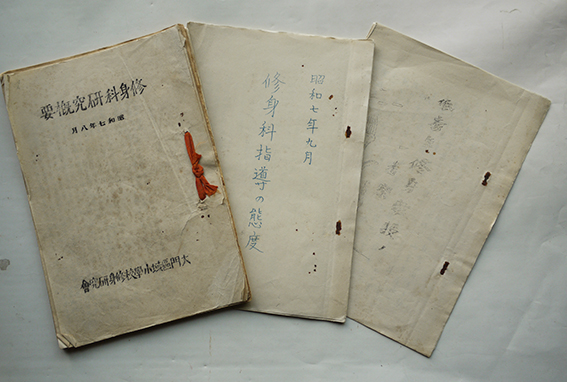 修身科研究概要
昭和七年八月
大門區域小學校修身研究會
昭和七年九月
修身科指導の態度